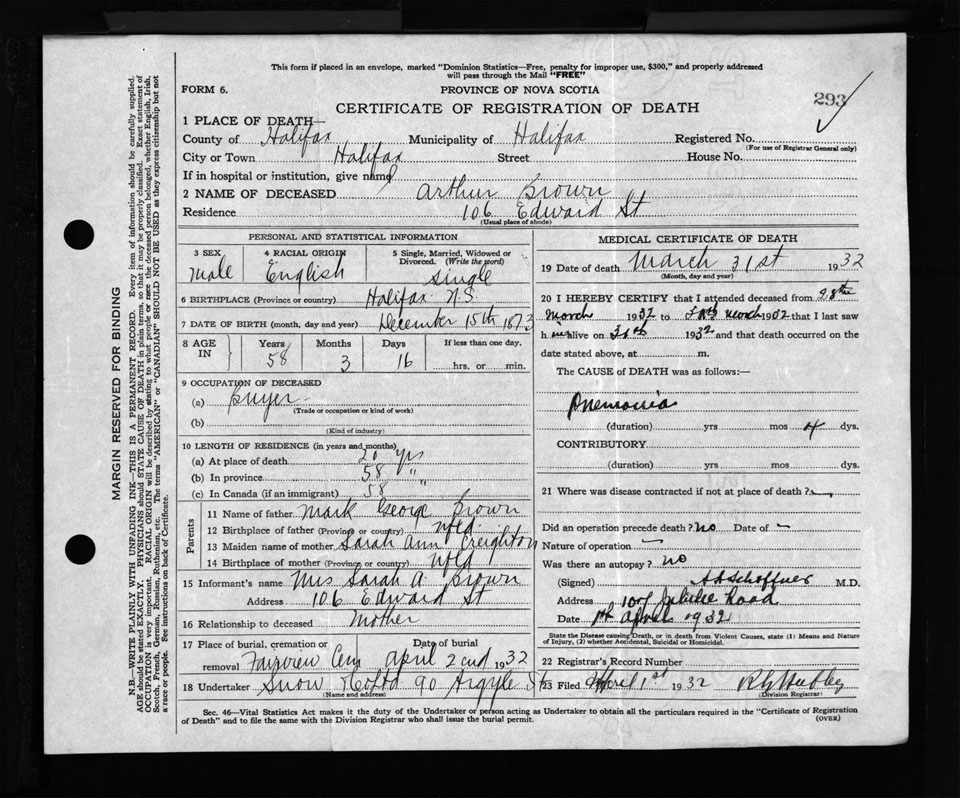 This form if placed in an envelope, marked "Dominion Statistics—Free, penalty for improper use, $300," and properly addressed
will pass through the Mail "FREE"
FORM 6.
PROVINCE OF NOVA SCOTIA
293
CERTIFICATE OF REGISTRATION OF DEATH
1 PLACE OF DEATH—
County of Halifax Municipality of Halifax Registered No.
(For use of Registrar General only)
City or Town Halifax Street House No.
If in hospital or institution, give name
2 NAME OF DECEASED Arthur Brown
Residence 106 Edward St
(Usual place of abode)
PERSONAL AND STATISTICAL INFORMATION
3 SEX 4 RACIAL ORIGIN 5 Single, Married, Widowed or
Divorced. (Write the word)
Male English Single
6 BIRTHPLACE (Province or country) Halifax N.S.
7 DATE OF BIRTH (month, day and year) December 15th 1873
8 AGE IN Years Months Days If less than one day,
58 3 16 hrs. or min.
9 OCCUPATION OF DECEASED
(a) Buyer
(Trade or occupation or kind of work)
(b)
(Kind of industry)
10 LENGTH OF RESIDENCE (in years and months)
(a) At place of death 20 yrs
(b) In province 58 "
(c) In Canada (if an immigrant) 58 "
Parents
11 Name of father Mark George Brown
12 Birthplace of father (Province or country) Nfld.
13 Maiden name of mother Sarah Ann Creighton
14 Birthplace of mother (Province or country) Nfld
15 Informant's name Mrs Sarah A Brown
Address 106 Edward St
16 Relationship to deceased Mother
17 Place of burial, cremation or Date of burial
removal Fairview Cem April 2nd 1932
18 Undertaker Snow & Co Ltd 90 Argyle St
(Name and address)
MEDICAL CERTIFICATE OF DEATH
19 Date of death March 31st 1932
(Month, day and year)
20 I HEREBY CERTIFY that I attended deceased from 28th
March 1932 to March 1932 that I last saw
h im alive on 1932 and that death occurred on the
date stated above, at m.
The CAUSE of DEATH was as follows:—
Pnemonia
(duration) yrs mos 4 dys.
CONTRIBUTORY
(duration) yrs mos dys.
21 Where was disease contracted if not at place of death?
Did an operation precede death? No Date of —
Nature of operation —
Was there an autopsy? No
(Signed) M.D.
Address Jubilee Road
Date 1st April 1932
State the Disease causing Death, or in death from Violent Causes, state (1) Means and Nature
of Injury, (2) whether Accidental, Suicidal or Homicidal.
22 Registrar's Record Number
23 Filed April 1st 1932
(Division Registrar)
Sec. 46—Vital Statistics Act makes it the duty of the Undertaker or person acting as Undertaker to obtain all the particulars required in the "Certificate of Registration
of Death" and to file the same with the Division Registrar who shall issue the burial permit.
(OVER)
MARGIN RESERVED FOR BINDING
N.B.—WRITE PLAINLY WITH UNFADING INK—THIS IS A PERMANENT RECORD. Every item of information should be carefully supplied.
AGE should be stated EXACTLY. PHYSICIANS should STATE CAUSE OF DEATH in plain terms, so that it may be properly classified. Exact statement of
OCCUPATION is very important. RACIAL ORIGIN will be described by stating to what people or race the deceased person belonged, whether English, Irish,
Scotch, French, German, Russian, Ruthenian, etc. The terms "AMERICAN" or "CANADIAN" SHOULD NOT BE USED as they express citizenship but not
a race or people. See instructions on back of Certificate.